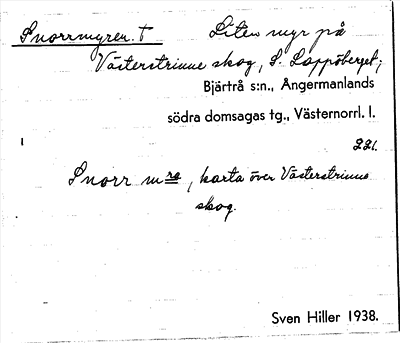 Snorrmyren. T Liten myr på
Västerstrinne skog, S. Loppöberget;
Bjärtrå s:n., Ångermanlands
södra domsagas tg., Västernorrl. l.
221.
Snorr m:ra, karta över Västerstrinne
skog.
Sven Hiller 1938.